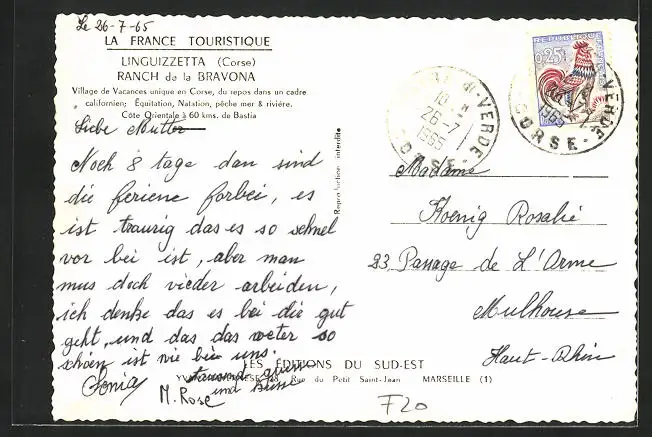 Le 26-7-65
LA FRANCE TOURISTIQUE
LINGUIZZETTA (Corse)
RANCH de la BRAVONA
Village de Vacances unique en Corse, du repos dans un cadre
californien; Équitation, Natation, pêche mer & rivière.
Côte Orientale à 60 kms. de Bastia
Liebe Mutter
Noch 8 tage dan sind
die feriene forbei, es
ist traurig das es so schnel
vor bei ist, aber man
mus doch vieder arbeiden,
ich denke das es bei die gut
geht, und das das weter so
schöen ist vie bei uns.
Sonia tausend grüse
und küsse
M. Rose
Reproduction interdite
REPUBLIQUE
0,25F
-VERDE
18
26-7
1965
CORSE
-VERDE
1965
CORSE
Madame
Koenig Rosalie
23 Passage de L'Arme
Mulhouse
Haut-Rhin
LES ÉDITIONS DU SUD-EST
Rue du Petit Saint-Jean MARSEILLE (1)
F20